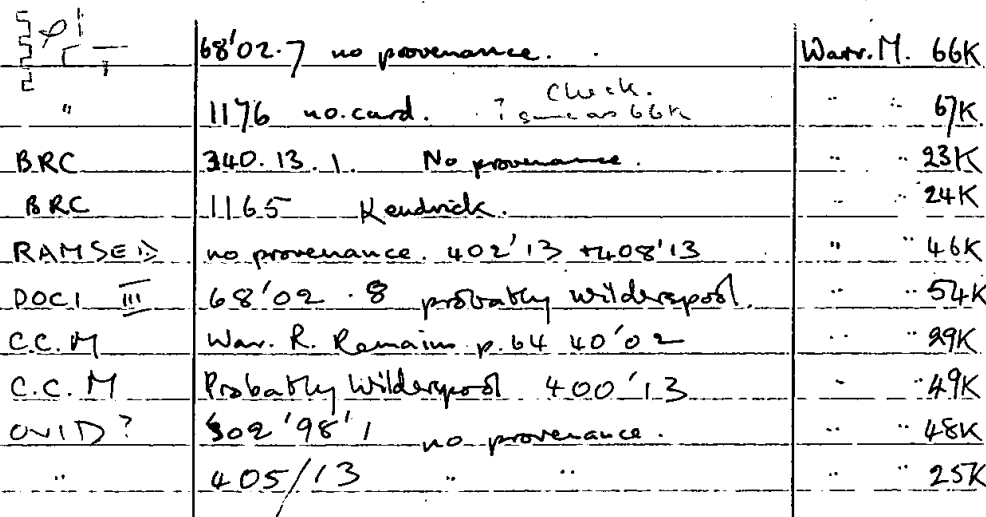 68'02.7 no provenance. Warr. M. 66K
" 1176 no. card. ? same as 66K Check. " " 67K
BRC 340.13.1. No provenance. " " 23K
BRC 1165 Kendrick. " " 24K
RAMSED no provenance. 402'13 +408'13 " " 46K
DOCI III 68'02.8 probably Wilderspool. " " 54K
C.C.M War. R. Remains p.64 40'02 " " 29K
C.C.M Probably Wilderspool 400'13 " " 49K
OVID? 302'98'1 no provenance. " " 48K
" 405/13 " " " " 25K